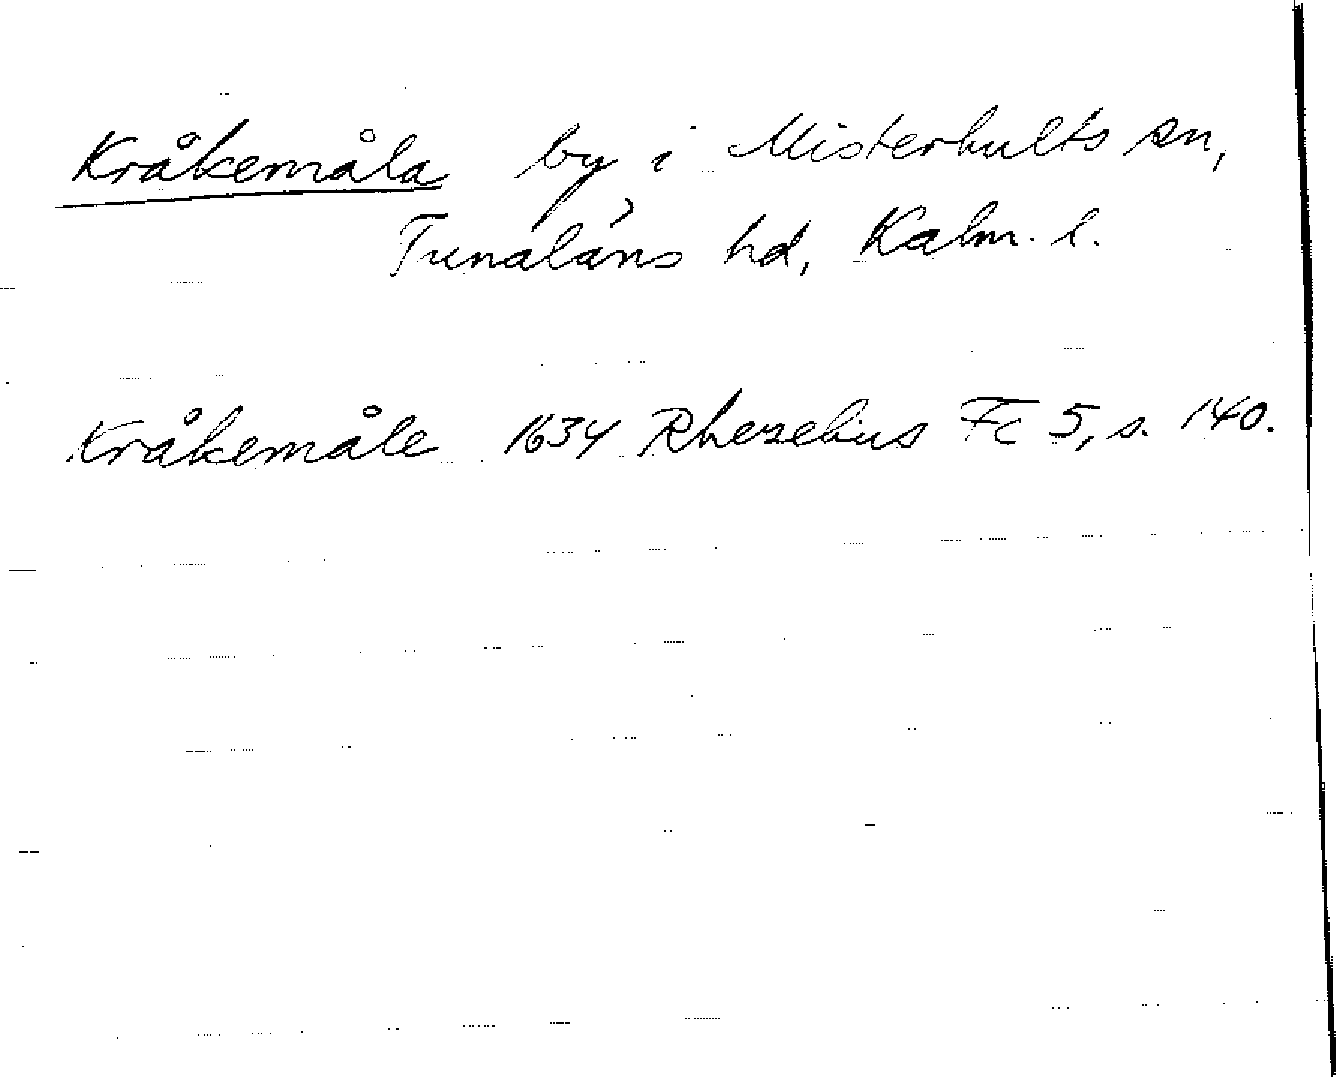 Kråkemåla by i Misterhults sn,
Tunaläns hd, Kalm. l.
Kråkemåle 1634 Rhezelius Fc 5, s. 140.